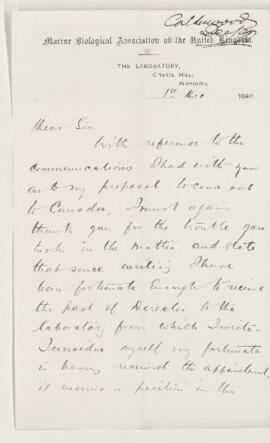 Calderwood
Marine Biological Association of the United Kingdom.
THE LABORATORY,
CITADEL HILL,
PLYMOUTH.
1st Dec 1890
Dear Sir
With reference to the
communications I had with you
as to my proposal to come out
to Canada, I must again
thank you for the trouble you
took in the matter and state
that since writing I have
been fortunate enough to receive
the post of Director to the
laboratory from which I write.
I consider myself very fortunate
in having received the appointment,
it ensures a position in the